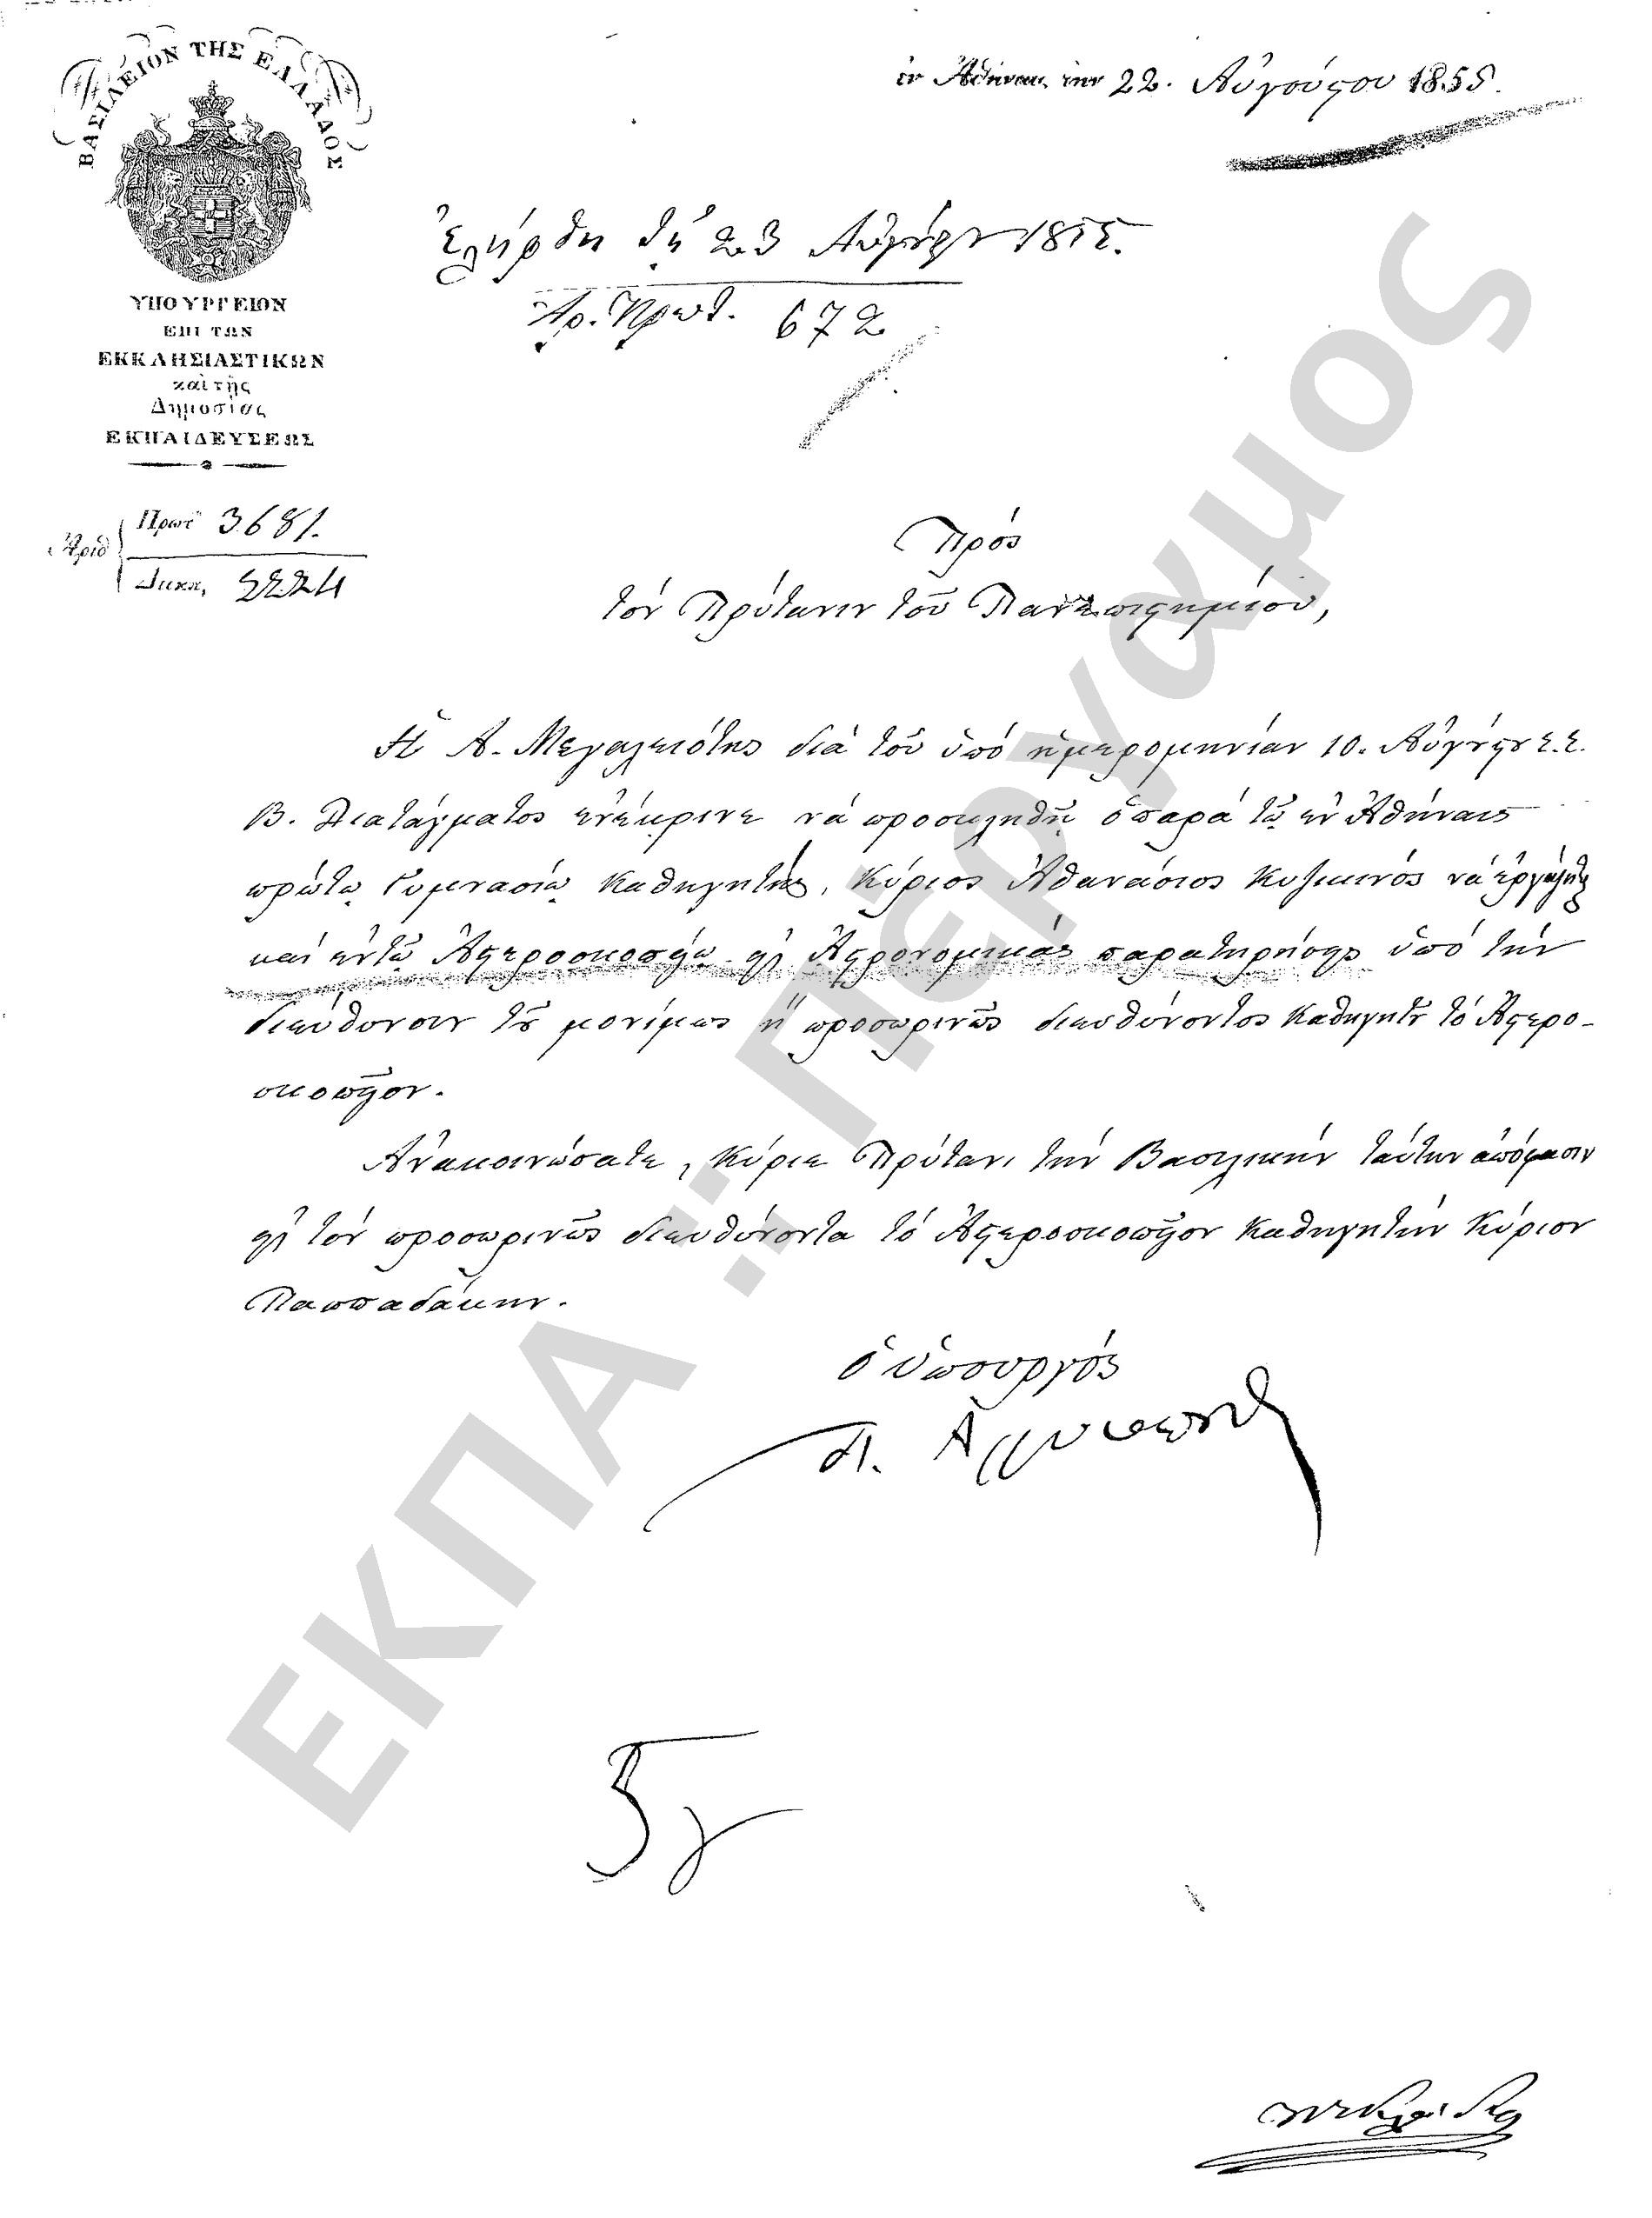 ΒΑΣΙΛΕΙΟΝ ΤΗΣ ΕΛΛΑΔΟΣ
ΥΠΟΥΡΓΕΙΟΝ
ΕΠΙ ΤΩΝ
ΕΚΚΛΗΣΙΑΣΤΙΚΩΝ
καὶ τῆς
Δημοσίας
ΕΚΠΑΙΔΕΥΣΕΩΣ
Ἀριθ
Πρωτ 3681.
Διεκπ,
ἐν Ἀθήναις την 22. Αὐγούστου 1855.
Ἐλήφθη τῇ 23 Αὐγούστου 1855.
Ἀρ. Πρωτ. 672
Πρὸς
τὸν Πρύτανιν τοῦ Πανεπιστημίου,
Ἡ Α. Μεγαλειότης διὰ τοῦ ὑπὸ ἡμερομηνίαν 10. Αὐγούστου ἐ.ἐ.
Β. Διατάγματος ἐνέκρινε νὰ προσκληθῇ ὁ παρὰ τῷ ἐν Ἀθήναις
πρώτῳ Γυμνασίῳ Καθηγητὴς, Κύριος Ἀθανάσιος Κυζικινὸς νὰ ἐργάζηται
καὶ ἐν τῷ Ἀστεροσκοπείῳ εἰς Ἀστρονομικὰς παρατηρήσεις ὑπὸ τὴν
διεύθυνσιν τοῦ μονίμως ἢ προσωρινῶς διευθύνοντος Καθηγητοῦ τὸ Ἀστερο-
σκοπεῖον.
Ἀνακοινώσατε, Κύριε Πρύτανι τὴν Βασιλικὴν ταύτην ἀπόφασιν
εἰς τὸν προσωρινῶς διευθύνοντα τὸ Ἀστεροσκοπεῖον Καθηγητὴν Κύριον
Παππαδάκην.
ὁ ὑπουργὸς
Π. Ἀργυρόπουλος
5γ
ΕΚΠΑ : Πέργαμος